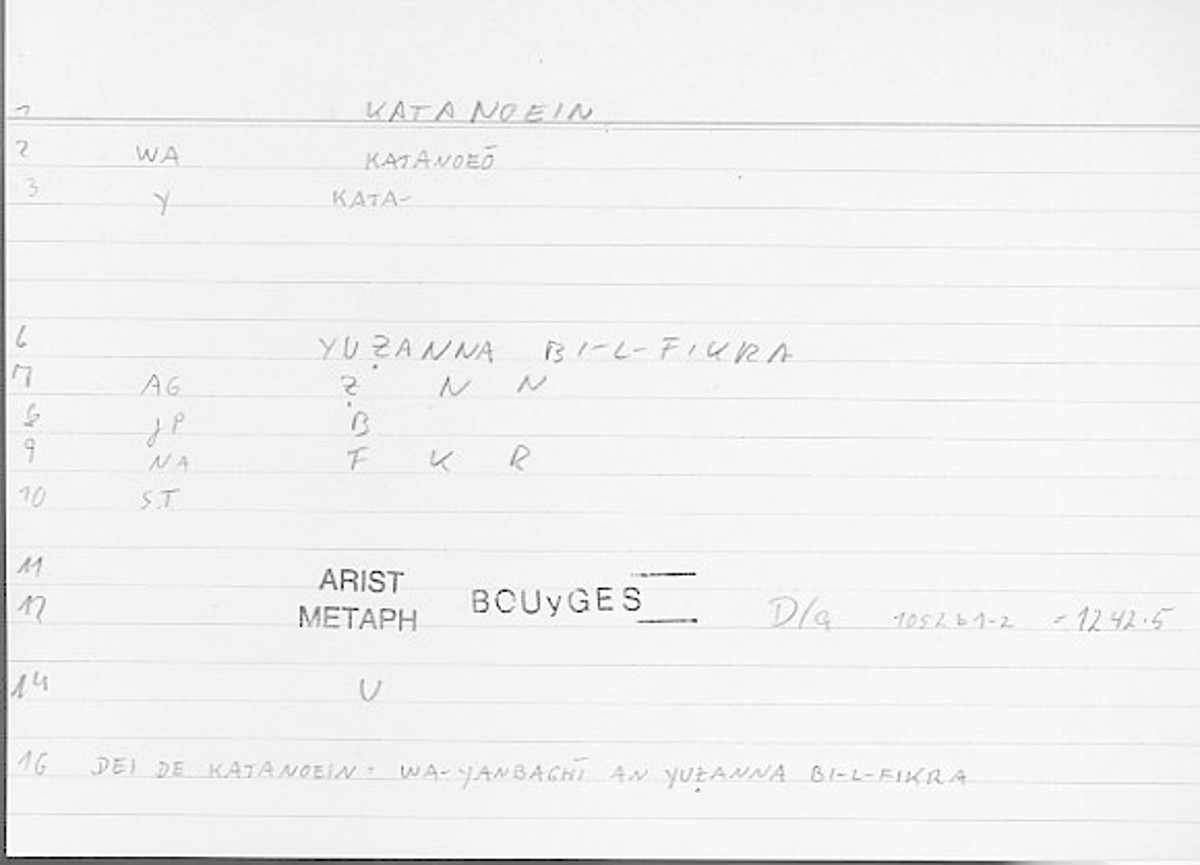 1 KATANOEIN
2 WA KATANOEŌ
3 Y KATA-
6 YUẒANNA BI-L-FIKRA
7 AG Ẓ N N
8 JP B
9 NA F K R
10 ST
11 ARIST
12 METAPH BOUyGES D/a 1052b1-2 = 1242.5
14 U
16 DEI DE KATANOEIN = WA-YANBAGHĪ AN YUẒANNA BI-L-FIKRA